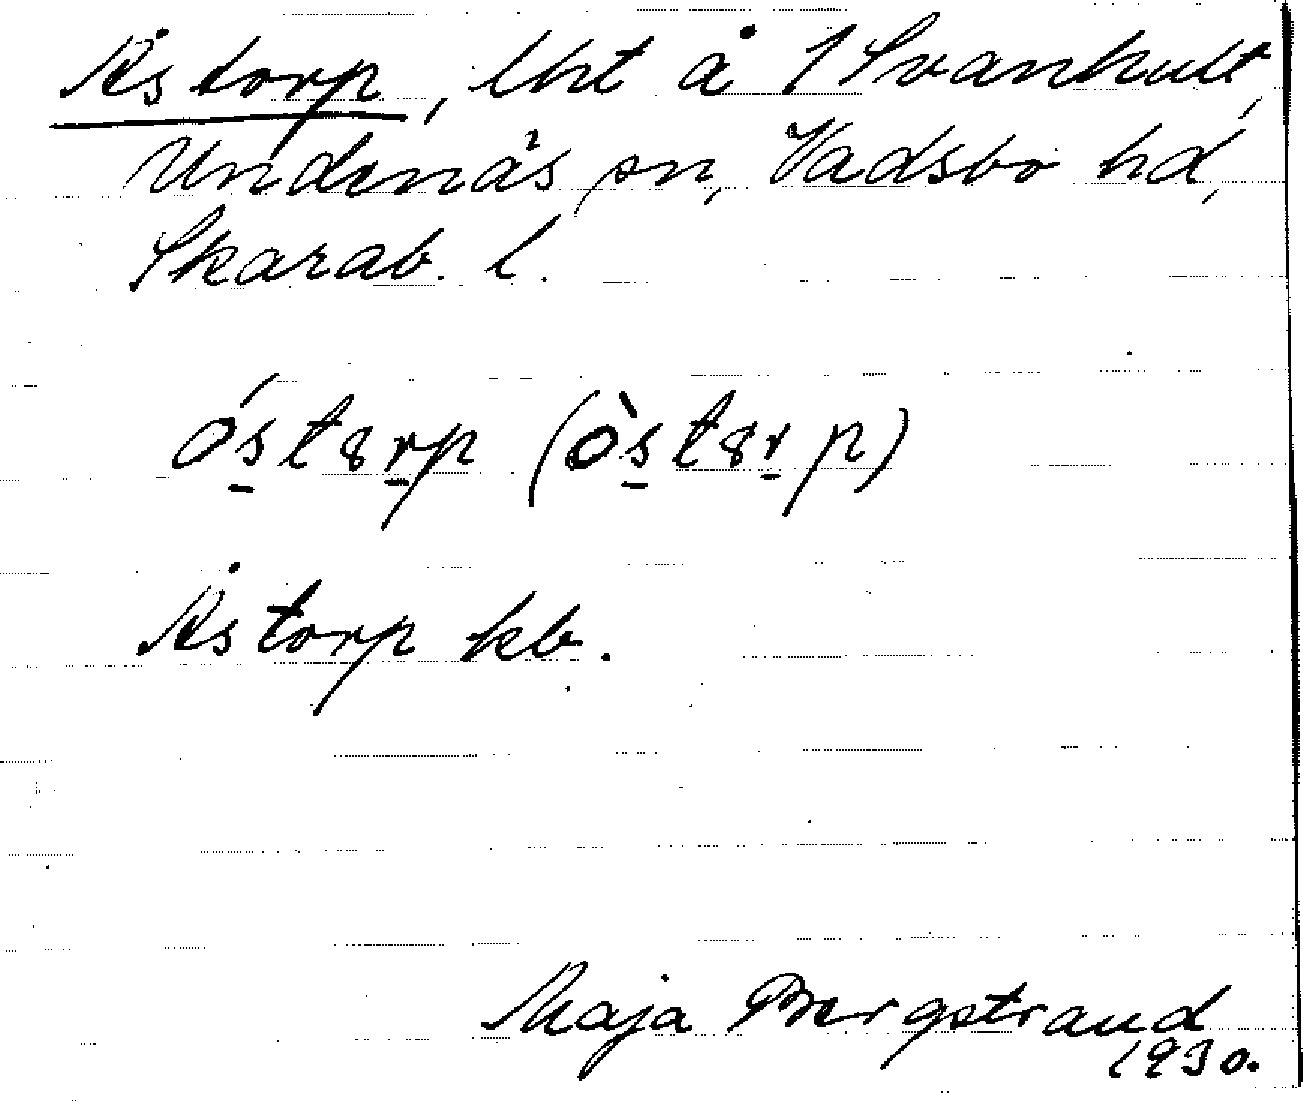 Åstorp, lht å 1 Svanhult,
Undenäs sn, Vadsbo hd,
Skarab. l.
óstərp (òstərp)
Åstorp kb.
Maja Bergstrand
1930.